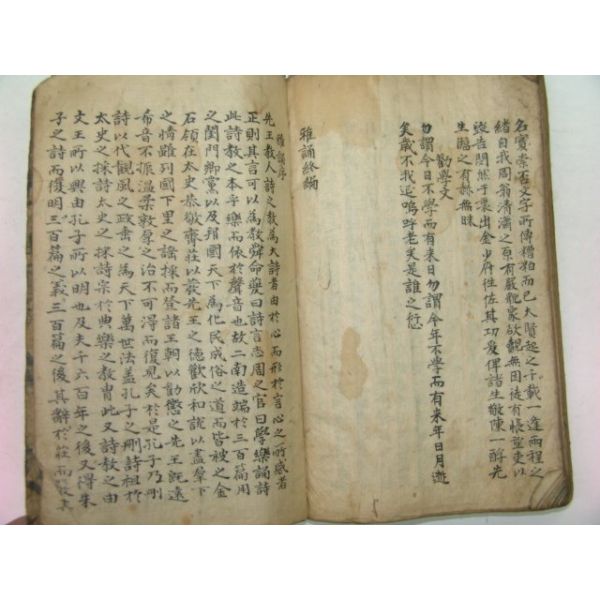 文字所傳糟粕而已大賢起之千載一逢兩程之
緖自我周翁清濂之原有嚴欲觀無因徒有帳望
告闕然于懷出金少府往佐其功爰俾諸生敬陳一酹先
生臨之有赫無昧
勸學文
勿謂今日不學而有来日勿謂今年不學而有来年日月逝
矣歲不我延嗚呼老矣是誰之愆
雅誦終編
雅誦序
先王教人詩之教為大詩者由於心而形於言心之所感者
正則其言可以為教舜命夔曰詩言志周之官曰學樂誦詩
此詩教之本乎樂而依於聲音也故二南造端於三百篇用
之閨門鄉黨以及邦國天下為化民成俗之道而皆被之金
石領在太史恭敬齊莊以發先王之德歡欣和說以盡羣下
之情雖列國下里之謠採而登諸王朝以勸懲之先王既遠
希音不振溫柔敦厚之治不可得而復見矣於是孔子乃刪
詩以代觀風之政垂之為天下萬世法盖孔子之刪詩祖於
太史之採詩太史之採詩宗於典樂之教胄此又詩教之由
文王所以興由孔子所以明也及夫千六百年之後又得朱
子之詩而復明三百篇之義三百篇之後其辭於莊而